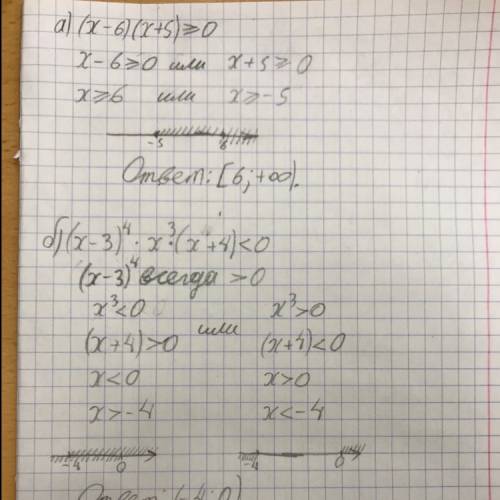 а) (x-6)(x+5)≥0
x-6≥0 или x+5≥0
x≥6 или x≥-5
-5 6
Ответ: [6;+∞).
б) (x-3)⁴·x³·(x+4)<0
(x-3)⁴ всегда >0
x³<0 или x³>0
(x+4)>0 (x+4)<0
x<0 x>0
x>-4 x<-4
-4 0 -4 0
Ответ: (-4;0)